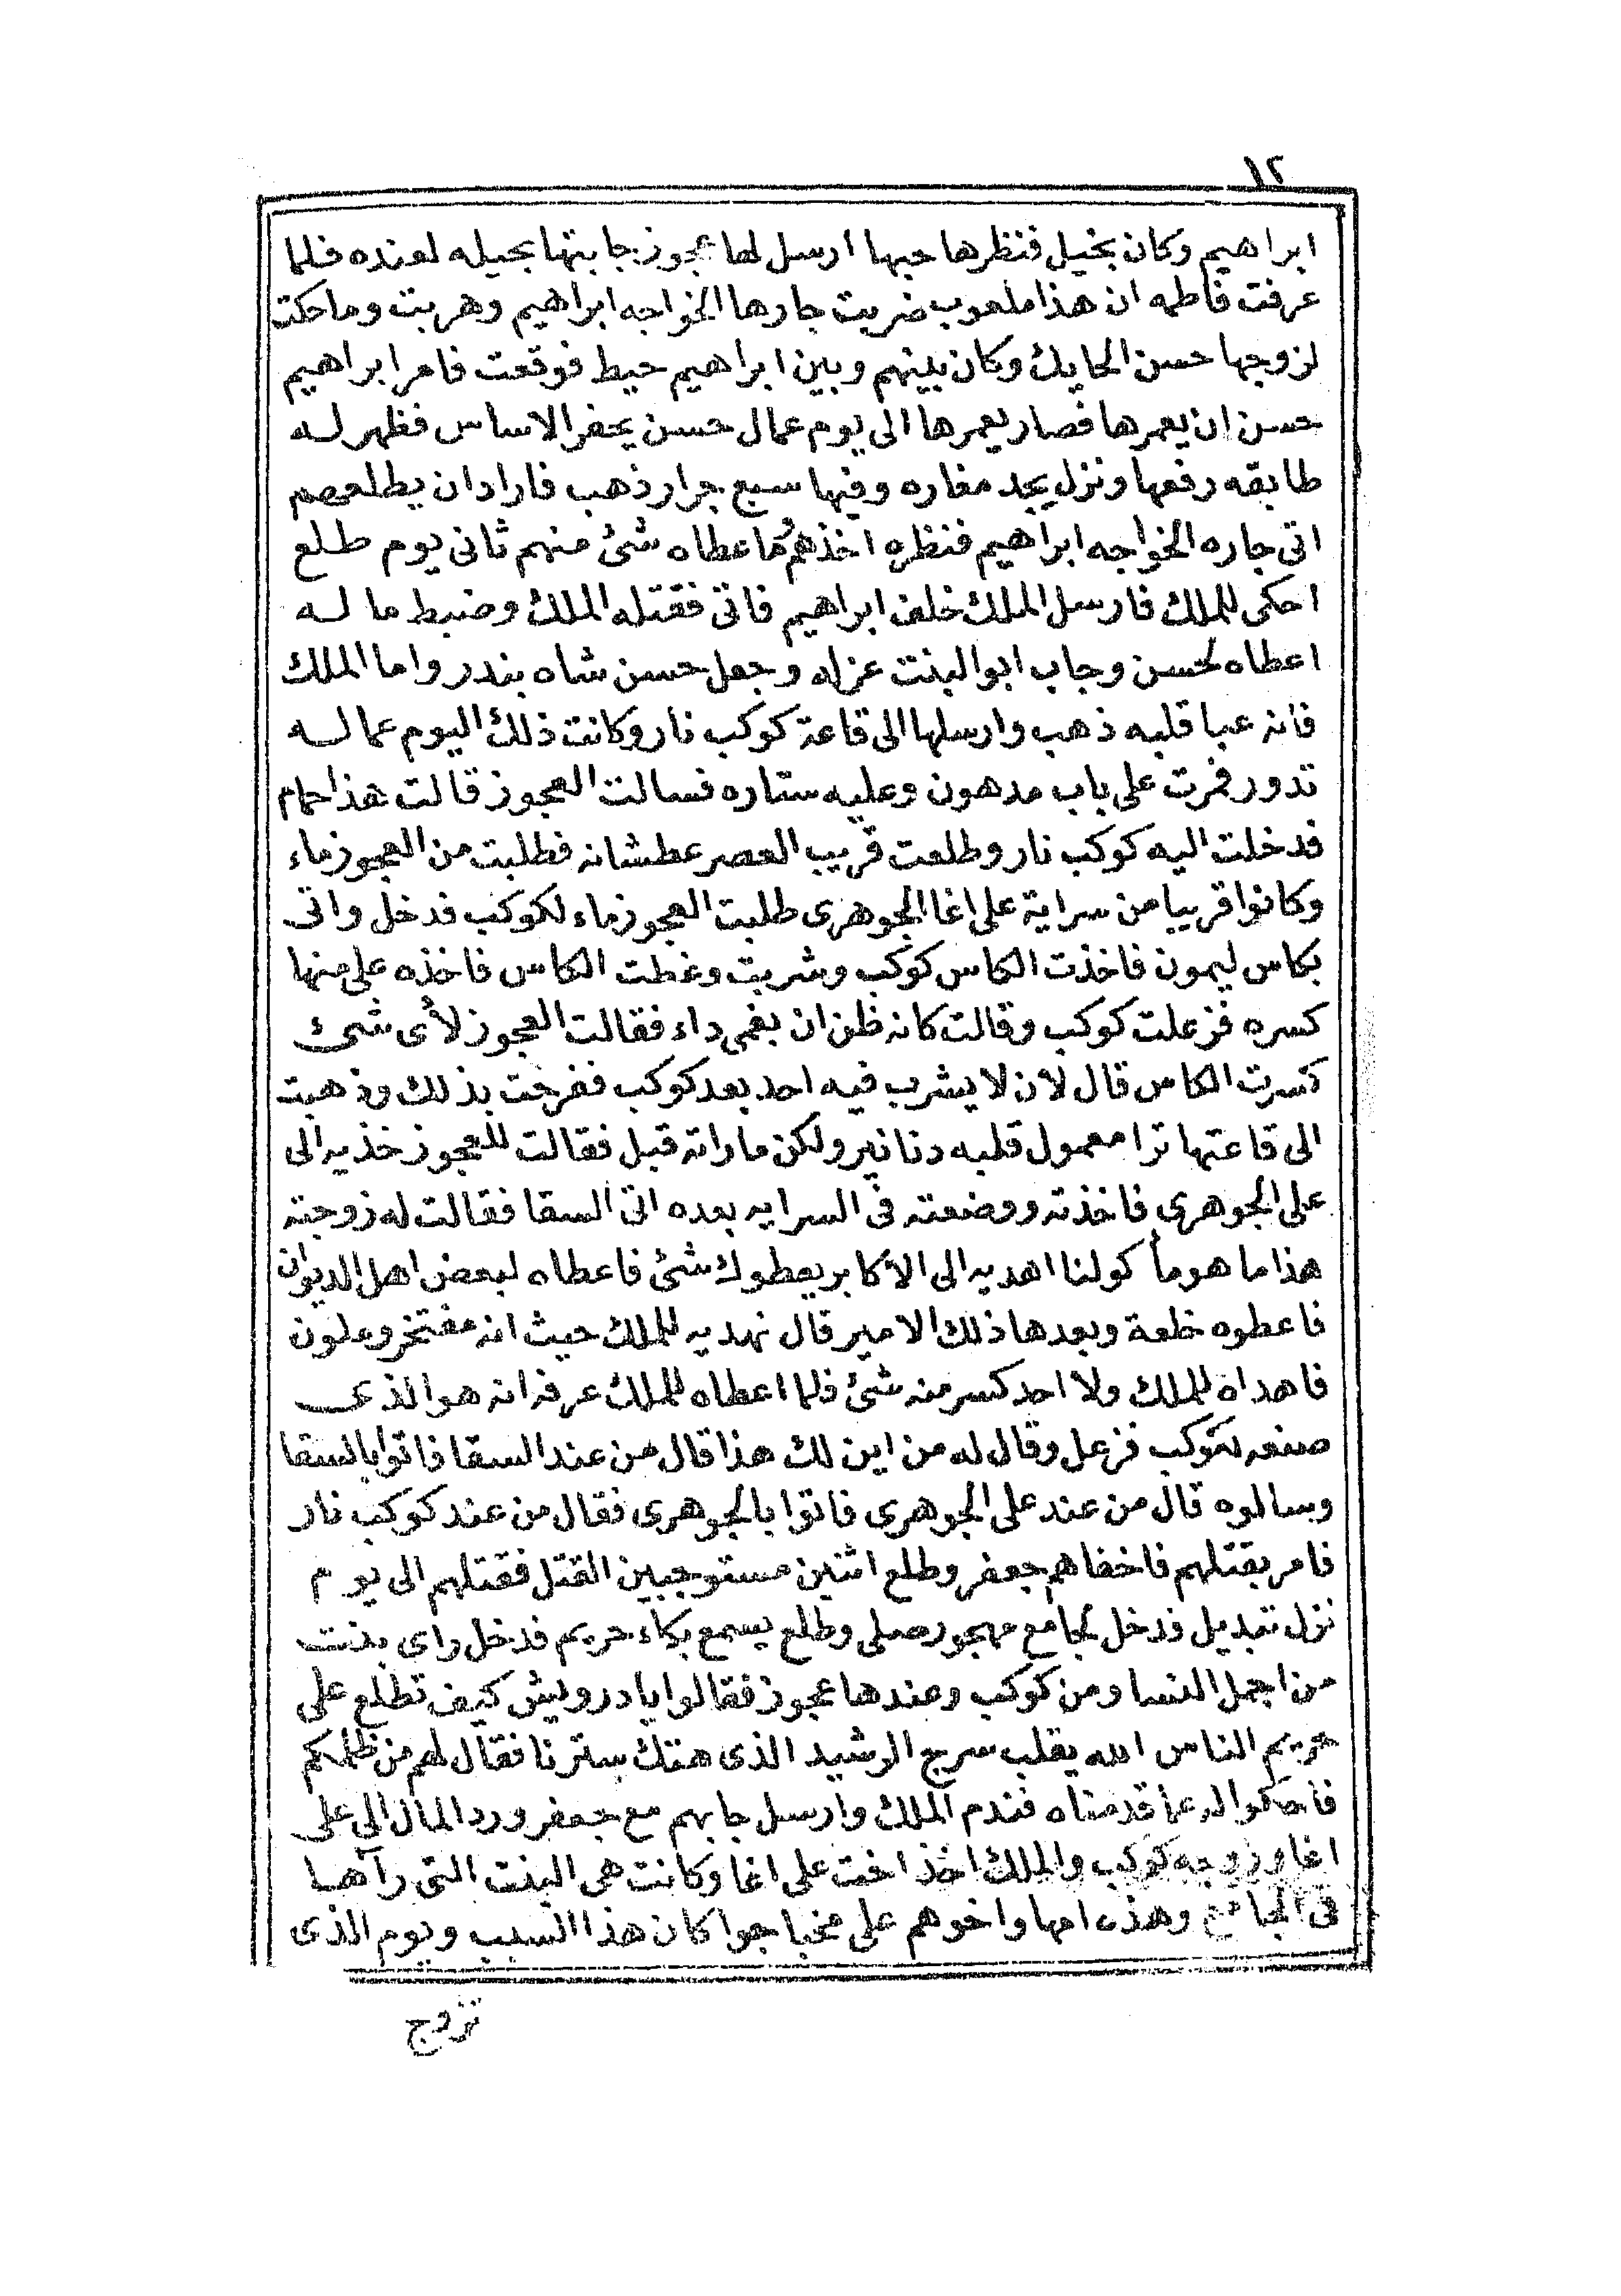 ١٢
ابراهيم وكان بخيل فنظرها حبها ارسل لها عجوز جابتها بحيله لعنده فلما
عرفت فاطمه ان هذا ملعوب ضربت جارها الخواجه ابراهيم وهربت وما حكت
لزوجها حسن الحايك وكان بينهم وبين ابراهيم حيط فوقعت فامر ابراهيم
حسن ان يعمرها فصار يعمرها الى يوم عمال حسن يحفر الاساس فظهر له
طابقه رفعها ونزل يجد مغاره وفيها سبع جرار ذهب فارادان يطلعهم
اتى جاره الخواجه ابراهيم فنظره اخذهم ما عطاه شئ منهم ثانى يوم طلع
احكى للملك فارسل الملك خلف ابراهيم فاتى فقتله الملك وضبط ما له
اعطاه لحسن وجاب ابوالبنت عزله وجعل حسن شاه بندر واما الملك
فانه عبا قلبه ذهب وارسلها الى قاعة كوكب نار وكانت ذلك اليوم عماله
تدور فمرت على باب مدهون وعليه ستاره فسالت العجوز قالت هذا حمام
فدخلت اليه كوكب نار وطلعت قريب العصر عطشانه فطلبت من العجوز ماء
وكانوا قريبا من سراية على اغا الجوهرى طلبت العجوز ماء لكوكب فدخل واتى
بكاس ليمون فاخذت الكاس كوكب وشربت وغطت الكاس فاخذه على منها
كسره فزعلت كوكب وقالت كانه ظن ان بفمى داء فقالت العجوز لأى شئ
كسرت الكاس قال لان لا يشرب فيه احد بعد كوكب ففرحت بذلك وذهبت
الى قاعتها ترا معمول قلبه دنانير ولكن ما راته قبل فقالت للعجوز خذيه الى
على الجوهرى فاخذته ووضعته فى السرايه بعده اتى السقا فقالت له زوجته
هذا ما هو مأكولنا اهديه الى الأكابر يعطوك شئ فاعطاه لبعض اهل الديوان
فاعطوه خلعة وبعدها ذلك الامير قال نهديه للملك حيث انه مفتخر وعلون
فاهداه للملك ولا احد كسر منه شئ فلما اعطاه للملك عرفه انه هو الذى
صنعه لكوكب فزعل وقال له من اين لك هذا قال من عند السقا فاتوا بالسقا
وسالوه قال من عند على الجوهرى فاتوا بالجوهرى فقال من عند كوكب نار
فامر بقتلهم فاخفاهم جعفر وطلع اثنين مستوجبين القتل فقتلهم الى يوم
نزل تبديل فدخل لجامع مهجور صلى وطلع يسمع بكاء حريم فدخل راى بنت
من اجمل النسا ومن كوكب وعندها عجوز فقالوا يا درويش كيف تطلع على
حريم الناس الله يقلب سرج الرشيد الذى هتك سترنا فقال لهم من ظلمكم
فاحكوا له عما قدمناه فندم الملك وارسل جابهم مع جعفر ورد المال الى على
اغا وزوجه كوكب والملك اخذ اخت على اغا وكانت هى البنت التى رآها
فى الجامع وهذه امها واخوهم على مخبا جوا كان هذا السبب ويوم الذى
تزوج